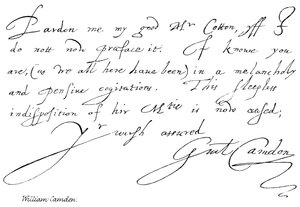 Pardon me my good Mr Cotton, yff I
do nott now preface it. I knowe you
are, (as we all here have been) in a melancholy
and pensive cogitations. This sleepless
indisposition of hir Matie is now ceased;
Yr wursh assured
Guil Camden.
William Camden.